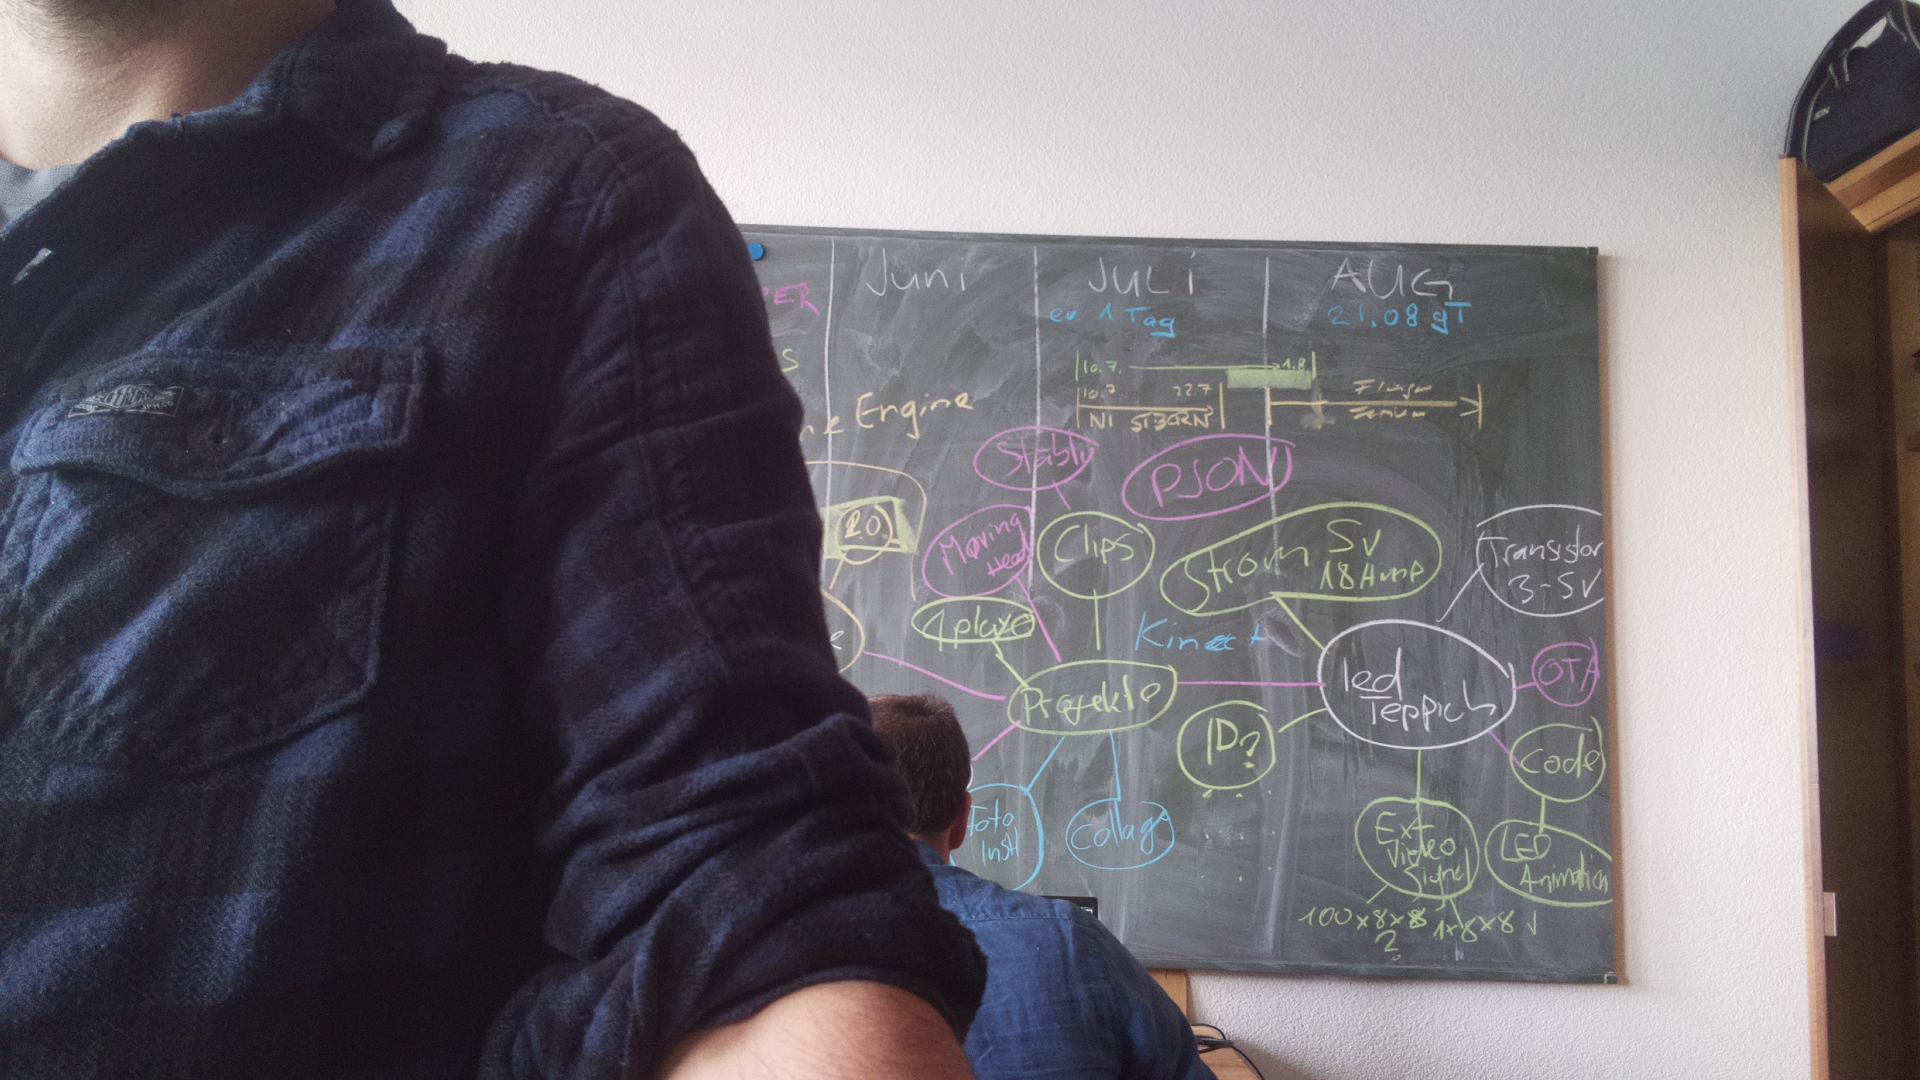 Juni
JULI
AUG
ev 1 Tag
21.08 gT
PER
S
10.7. 1.8
10.7 22.7
NI
Engine
Stabil
PJON
2.0
Moving
Head
Clips
Strom 5V
18 Amp
Transistor
3-5V
1 place
Kinect
e
Projekte
led
Teppich
OTA
ID?
Code
Foto
Inst
Collage
Ext
Video
Signal
LED
Animation
100x8x8 1x8x8 √
2